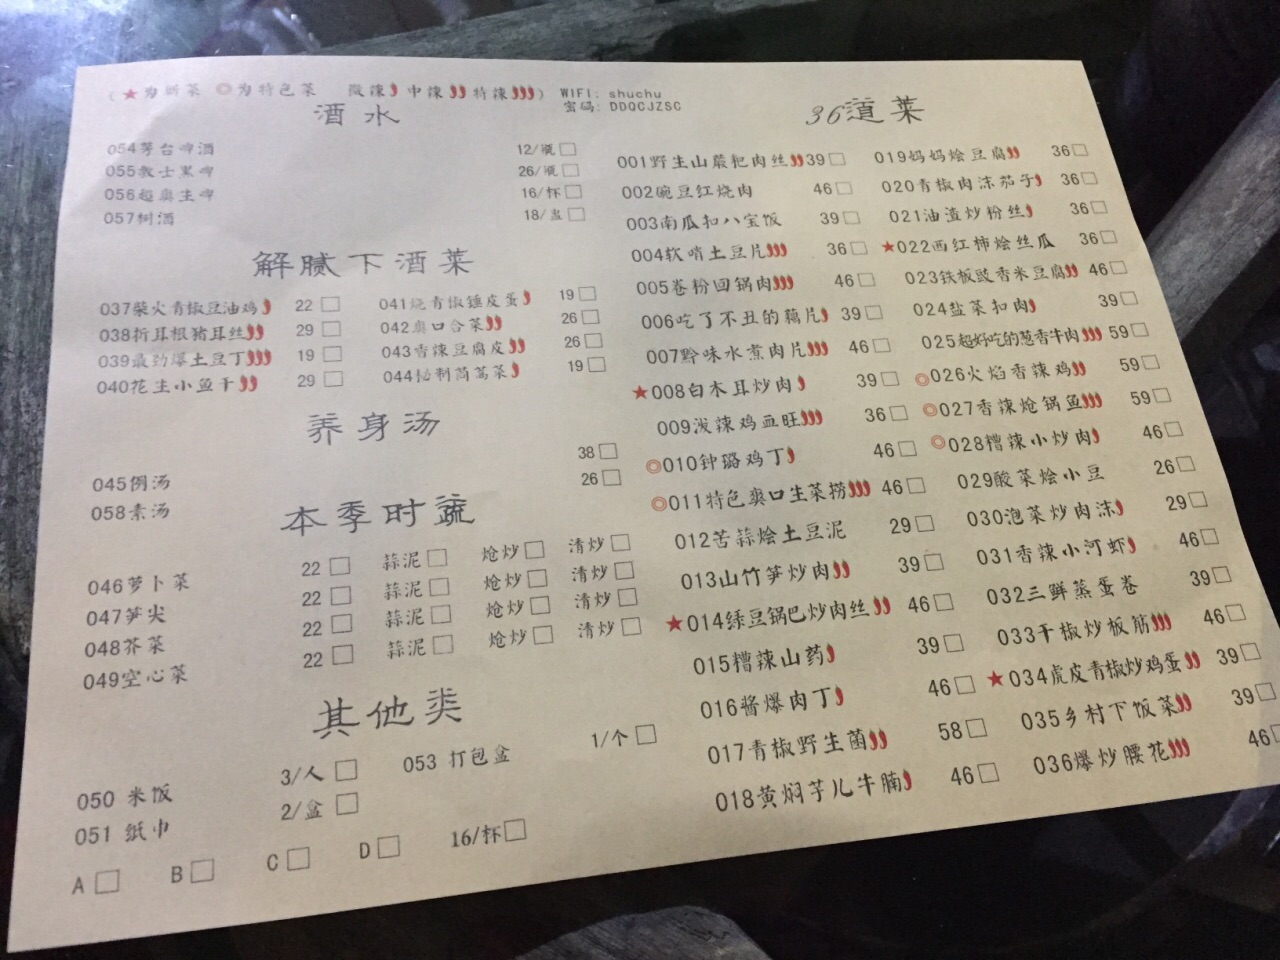 （★为新菜 ◎为特色菜 微辣 中辣 特辣） WIFI: shuchu
密码: DDQCJZSC
酒水
054茅台啤酒 12/瓶□
055教士黑啤 26/瓶□
056超奥生啤 16/杯□
057桐酒 18/壶□
解腻下酒菜
037柴火青椒豆油鸡 22 □
038折耳根猪耳丝 29 □
039最劲爆土豆丁 19 □
040花生小鱼干 29 □
041烧青椒锤皮蛋 19 □
042爽口合菜 26 □
043香辣豆腐皮 26 □
044秘制茼蒿菜 19 □
养身汤
045例汤 38 □
058素汤 26 □
本季时蔬
046萝卜菜 22 □ 蒜泥□ 炝炒□ 清炒□
047笋尖 22 □ 蒜泥□ 炝炒□ 清炒□
048芥菜 22 □ 蒜泥□ 炝炒□ 清炒□
049空心菜 22 □ 蒜泥□ 炝炒□ 清炒□
其他类
050 米饭 3/人 □ 053 打包盒 1/个 □
051 纸巾 2/盒 □
A □ B □ C □ D □ 16/杯□
36道菜
001野生山蕨粑肉丝 39□
002豌豆红烧肉 46□
003南瓜扣八宝饭 39□
004软哨土豆片 36□
005卷粉回锅肉 46□
006吃了不丑的藕片 39□
007黔味水煮肉片 46□
★008白木耳炒肉 39□
009泼辣鸡血旺 36□
◎010钟璐鸡丁 46□
◎011特色爽口生菜捞 46□
012苦蒜烩土豆泥 29□
013山竹笋炒肉 39□
★014绿豆锅巴炒肉丝 46□
015糟辣山药 39□
016酱爆肉丁 46□
017青椒野生菌 58□
018黄焖芋儿牛腩 46□
019妈妈烩豆腐 36□
020青椒肉沫茄子 36□
021油渣炒粉丝 36□
★022西红柿烩丝瓜 36□
023铁板豉香米豆腐 46□
024盐菜扣肉 39□
025超好吃的葱香牛肉 59□
◎026火焰香辣鸡 59□
◎027香辣炝锅鱼 59□
◎028糟辣小炒肉 46□
029酸菜烩小豆 26□
030泡菜炒肉沫 29□
031香辣小河虾 46□
032三鲜蒸蛋卷 39□
033干椒炒板筋 46□
★034虎皮青椒炒鸡蛋 39□
035乡村下饭菜 39□
036爆炒腰花 46□